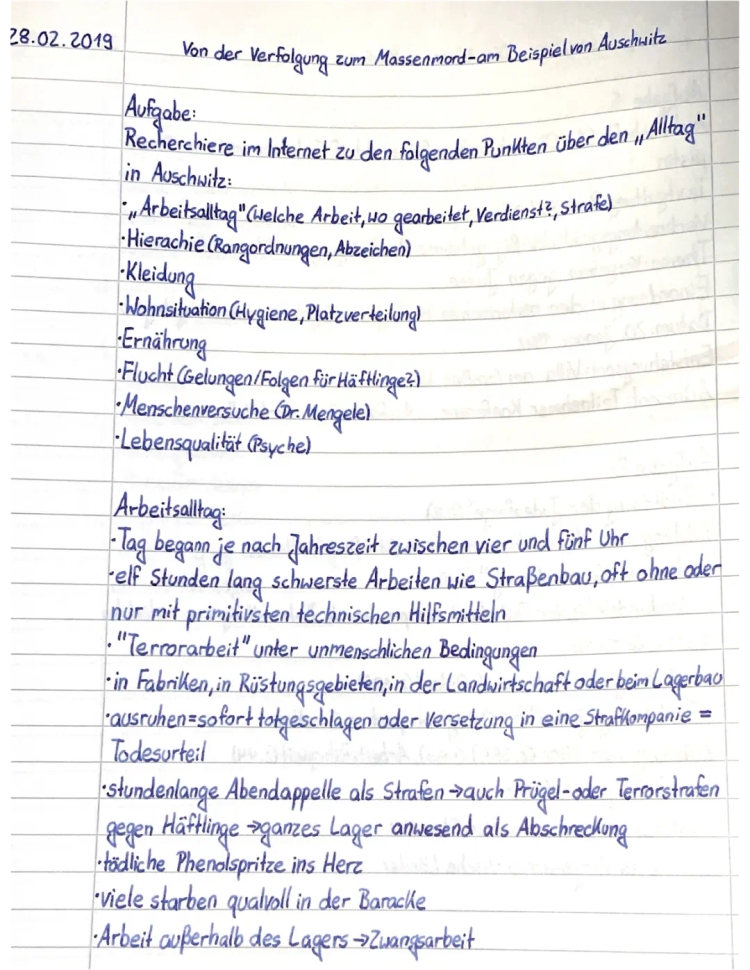 28.02.2019
Von der Verfolgung zum Massenmord-am Beispiel von Auschwitz
Aufgabe:
Recherchiere im Internet zu den folgenden Punkten über den „Alltag"
in Auschwitz:
·„Arbeitsalltag"(Welche Arbeit, wo gearbeitet, Verdienst?, Strafe)
·Hierachie (Rangordnungen, Abzeichen)
·Kleidung
·Wohnsituation (Hygiene, Platzverteilung)
·Ernährung
·Flucht (Gelungen/Folgen für Häftlinge?)
·Menschenversuche (Dr. Mengele)
·Lebensqualität (Psyche)
Arbeitsalltag:
·Tag begann je nach Jahreszeit zwischen vier und fünf Uhr
·elf Stunden lang schwerste Arbeiten wie Straßenbau, oft ohne oder
nur mit primitivsten technischen Hilfsmitteln
·"Terrorarbeit" unter unmenschlichen Bedingungen
·in Fabriken, in Rüstungsgebieten, in der Landwirtschaft oder beim Lagerbau
·ausruhen=sofort totgeschlagen oder Versetzung in eine Strafkompanie =
Todesurteil
·stundenlange Abendappelle als Strafen →auch Prügel-oder Terrorstrafen
gegen Häftlinge →ganzes Lager anwesend als Abschreckung
·tödliche Phenolspritze ins Herz
·viele starben qualvoll in der Baracke
·Arbeit außerhalb des Lagers →Zwangsarbeit